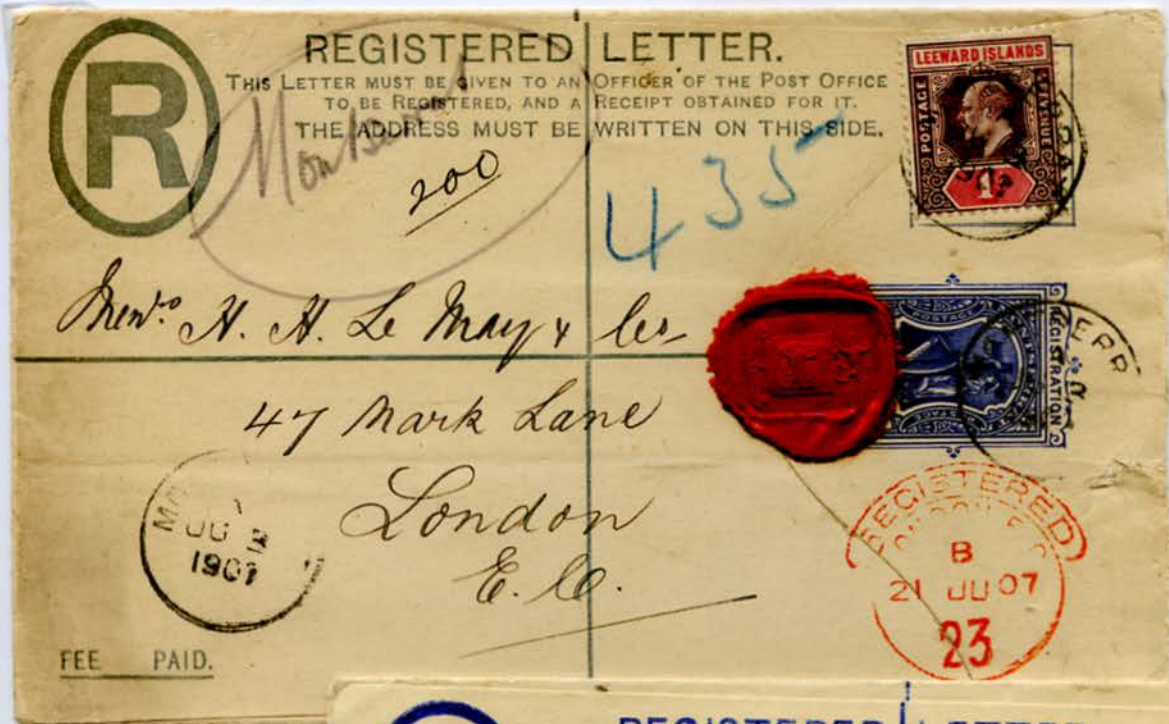 R
REGISTERED LETTER.
THIS LETTER MUST BE GIVEN TO AN OFFICER OF THE POST OFFICE
TO BE REGISTERED, AND A RECEIPT OBTAINED FOR IT.
THE ADDRESS MUST BE WRITTEN ON THIS SIDE.
LEEWARD ISLANDS
POSTAGE
& REVENUE
1D
200
435
H. H. Le May &
47 Mark Lane
London
E.C.
POSTAGE
REGISTRATION
JU
1907
REGISTERED
B
21 JU 07
23
FEE PAID.
REGISTERED LETTER